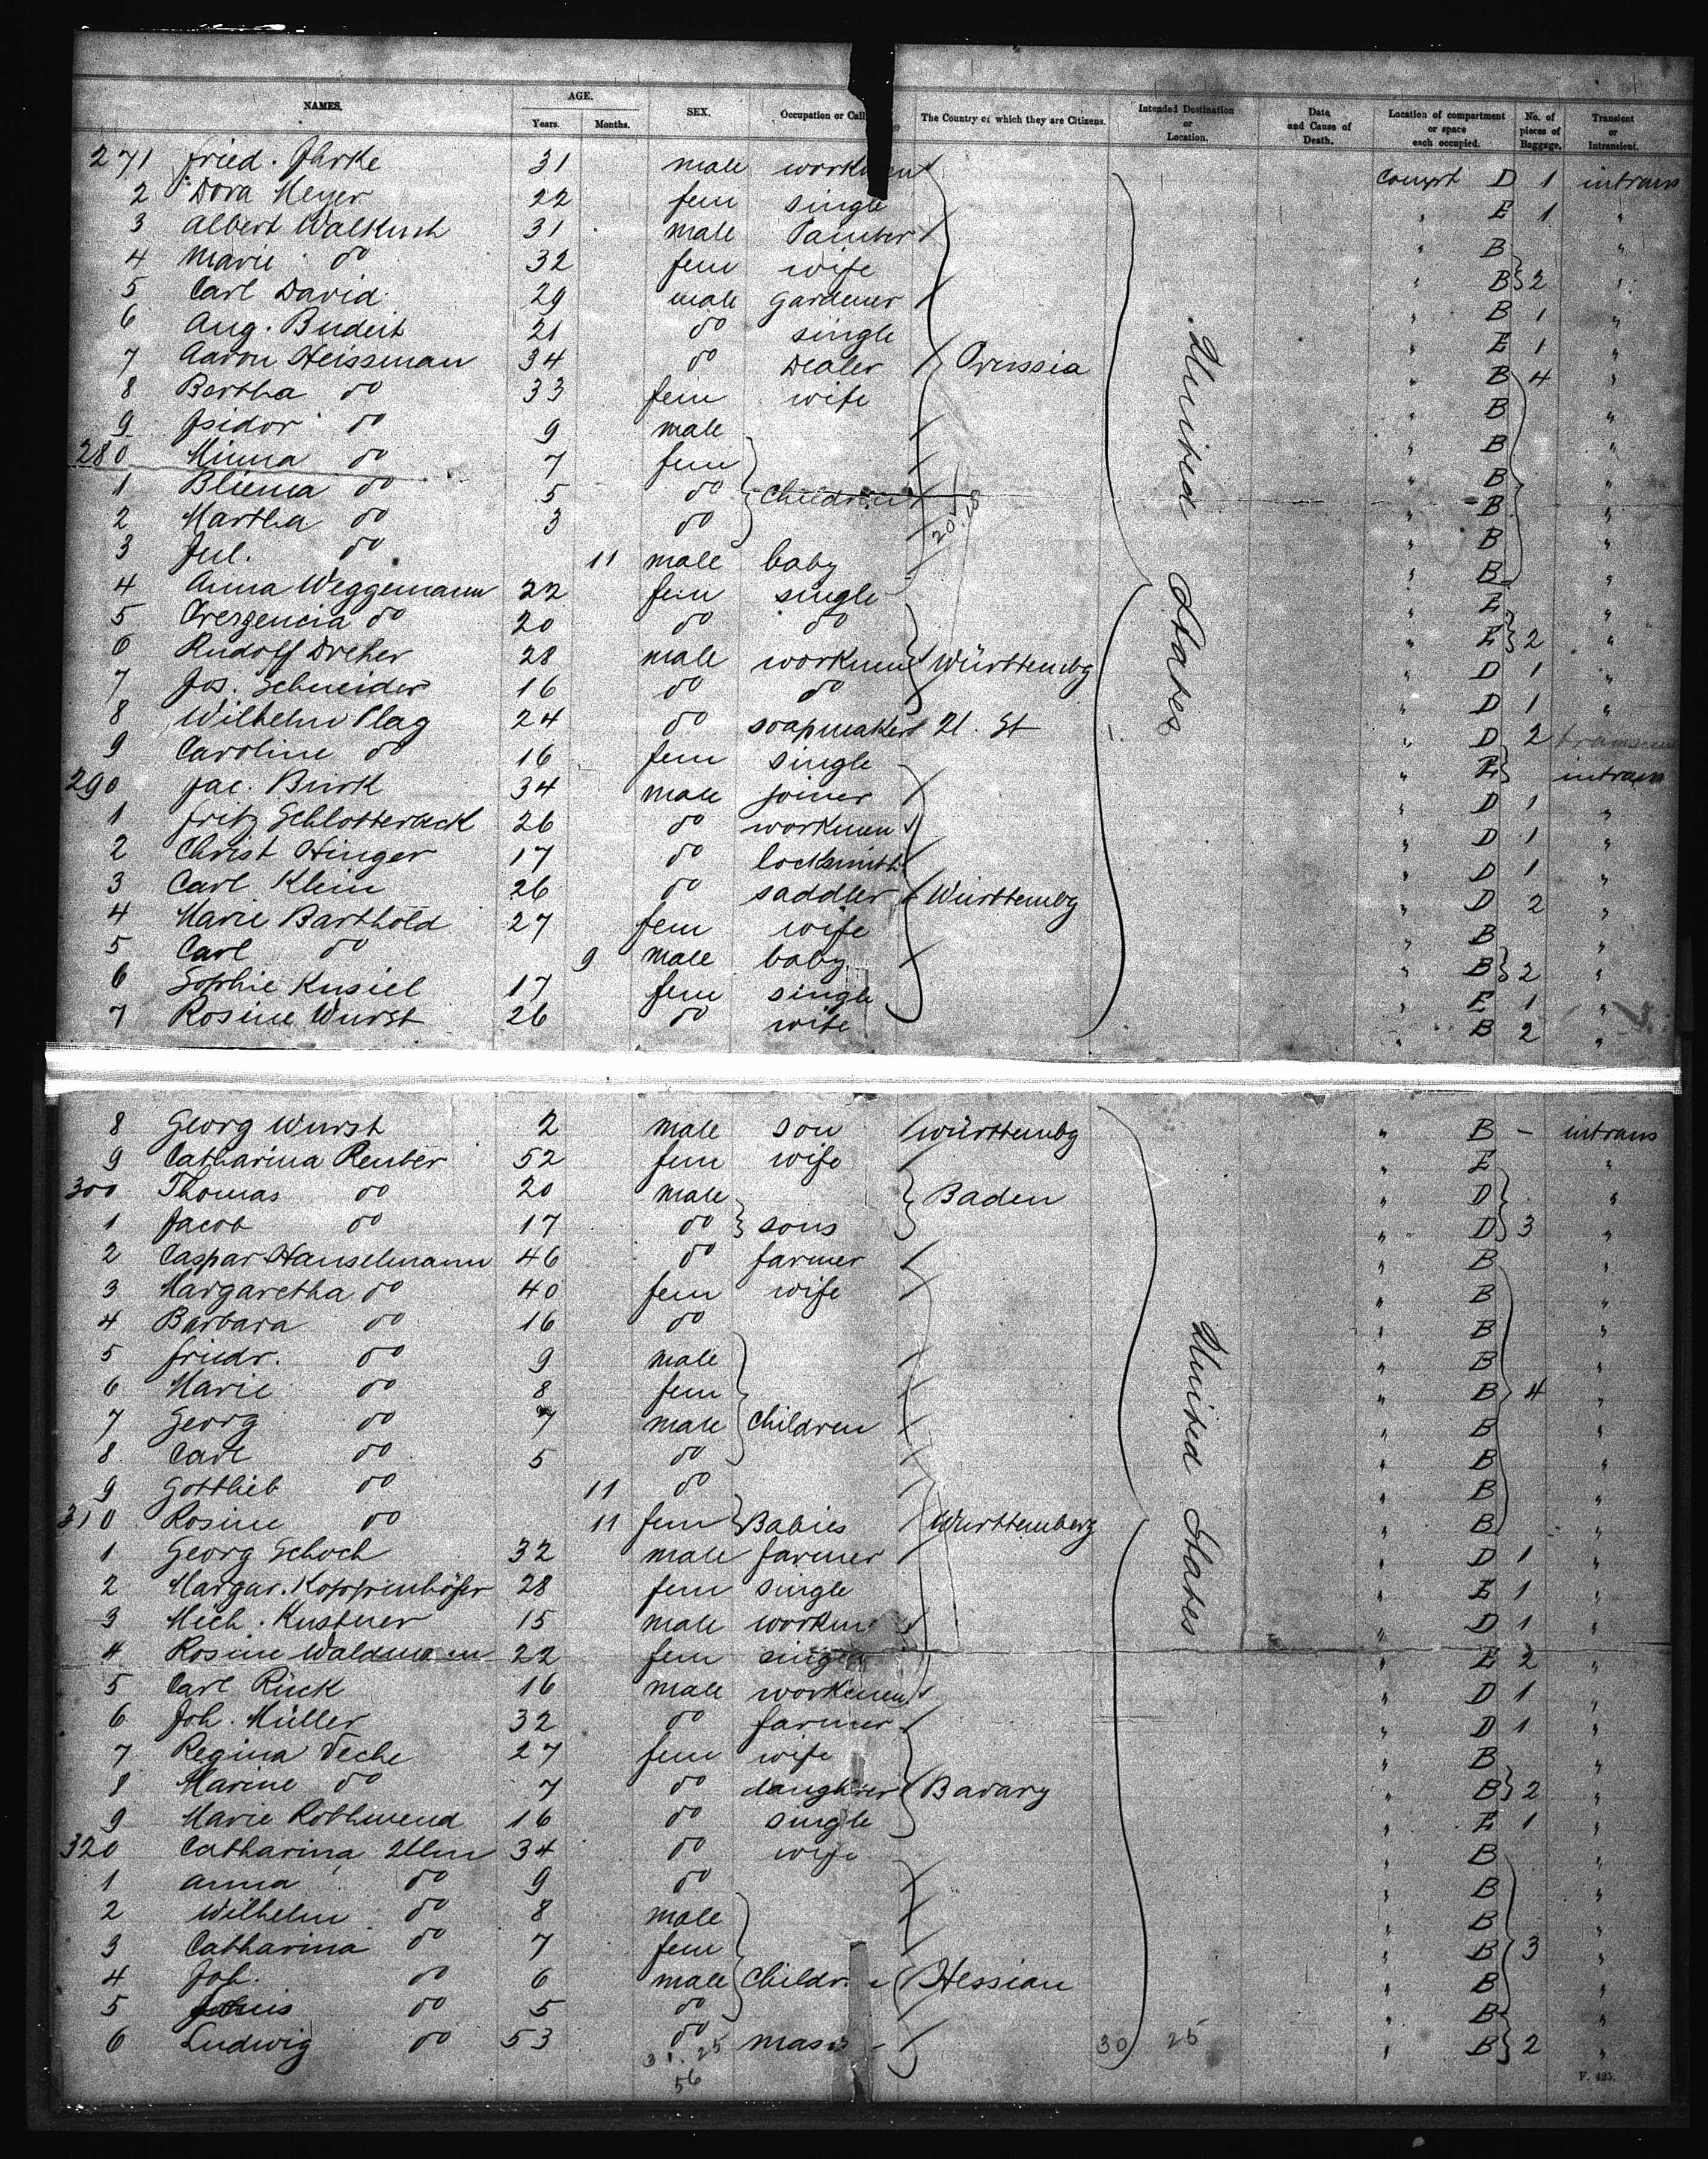 NAMES. AGE. SEX. Occupation or Call The Country of which they are Citizens. Intended Destination or Location. Date and Cause of Death. Location of compartment or space each occupied. No. of pieces of Baggage. Transient or Intransient.
Years. Months.
271 Fried. 31 male workmen Compt D 1 intrans
2 Dora Meyer 22 fem single " E 1 "
3 Albert Walkusch 31 male Painter " B "
4 Marie do 32 fem wife " B 2 "
5 Carl David 29 male gardener " B 1 "
6 Aug. Budeit 21 do single " E 1 "
7 Aaron Heissman 34 do Dealer Prussia " B 4 "
8 Bertha do 33 fem wife " B "
9 Isidor do 9 male " B "
280 Minna do 7 fem " B "
1 Bliema do 5 do Children " B "
2 Martha do 3 do " B "
3 Jul. do 11 male baby " B "
4 Anna Weggemann 22 fem single " E "
5 Crezencia do 20 do do " E 2 "
6 Rudolf Dreher 28 male workmen Württembg " D 1 "
7 Jos. Schneider 16 do do " D 1 "
8 Wilhelm Plag 24 do soapmaker U. St " D 2
9 Caroline do 16 fem single " E intrans
290 Jac. Burk 34 male joiner " D 1 "
1 Fritz Schlotterack 26 do workmen " D 1 "
2 Christ Hinger 17 do locksmith " D 1 "
3 Carl Klein 26 do saddler Württembg " D 2 "
4 Marie Barthold 27 fem wife " B "
5 Carl do 9 male baby " B 2 "
6 Sophie Kusiel 17 fem single " E 1 "
7 Rosine Wurst 26 do wife " B 2 "
United States
8 Georg Wurst 2 male son Württembg " B - intrans
9 Catharina Reuter 52 fem wife " E "
300 Thomas do 20 male Baden " D "
1 Jacob do 17 do sons " D 3 "
2 Caspar Hanselmann 46 do farmer " B "
3 Margaretha do 40 fem wife " B "
4 Barbara do 16 do " B "
5 Friedr. do 9 male " B "
6 Marie do 8 fem " B 4 "
7 Georg do 7 male Children " B "
8 Carl do 5 do " B "
9 Gottlieb do 11 do " B "
310 Rosine do 11 fem Babies Württemberg " B "
1 Georg Schoch 32 male farmer " D 1 "
2 Margar. Koppenhöfer 28 fem single " E 1 "
3 Mich. Kustner 15 male workm " D 1 "
4 Rosine Waldmann 22 fem single " E 2 "
5 Carl Rück 16 male workmen " D 1 "
6 Joh. Müller 32 do farmer " D 1 "
7 Regina Veche 27 fem wife " B "
8 Marine do 7 do daughter Bavary " B 2 "
9 Marie Rothmend 16 do single " E 1 "
320 Catharina Ulm 34 do wife " B "
1 Anna do 9 do " B "
2 Wilhelm do 8 male " B "
3 Catharina do 7 fem " B 3 "
4 Joh. do 6 male Childr Hessian " B "
5 do 5 do " B "
6 Ludwig do 53 do mas " B 2 "
United States
31. 25 30 25
56
F. 425.